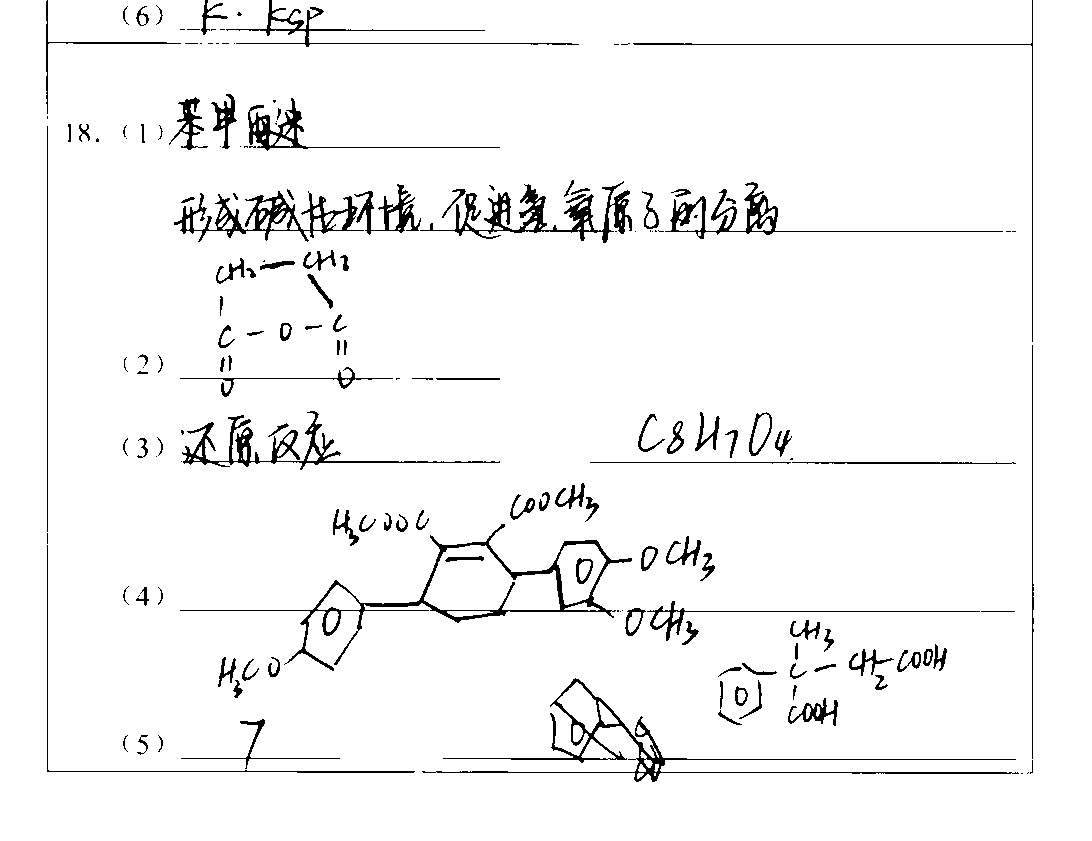 (6) K · Ksp
18. (1) 苯甲醚
形成碱性环境,促进氢、氧原子的分离
CH2 — CH2
C — O — C
(2) O O
(3) 还原反应 C8H7O4
H3COOC COOCH3
OCH3
(4)
OCH3
H3CO
CH3
C — CH2 — COOH
COOH
(5) 7